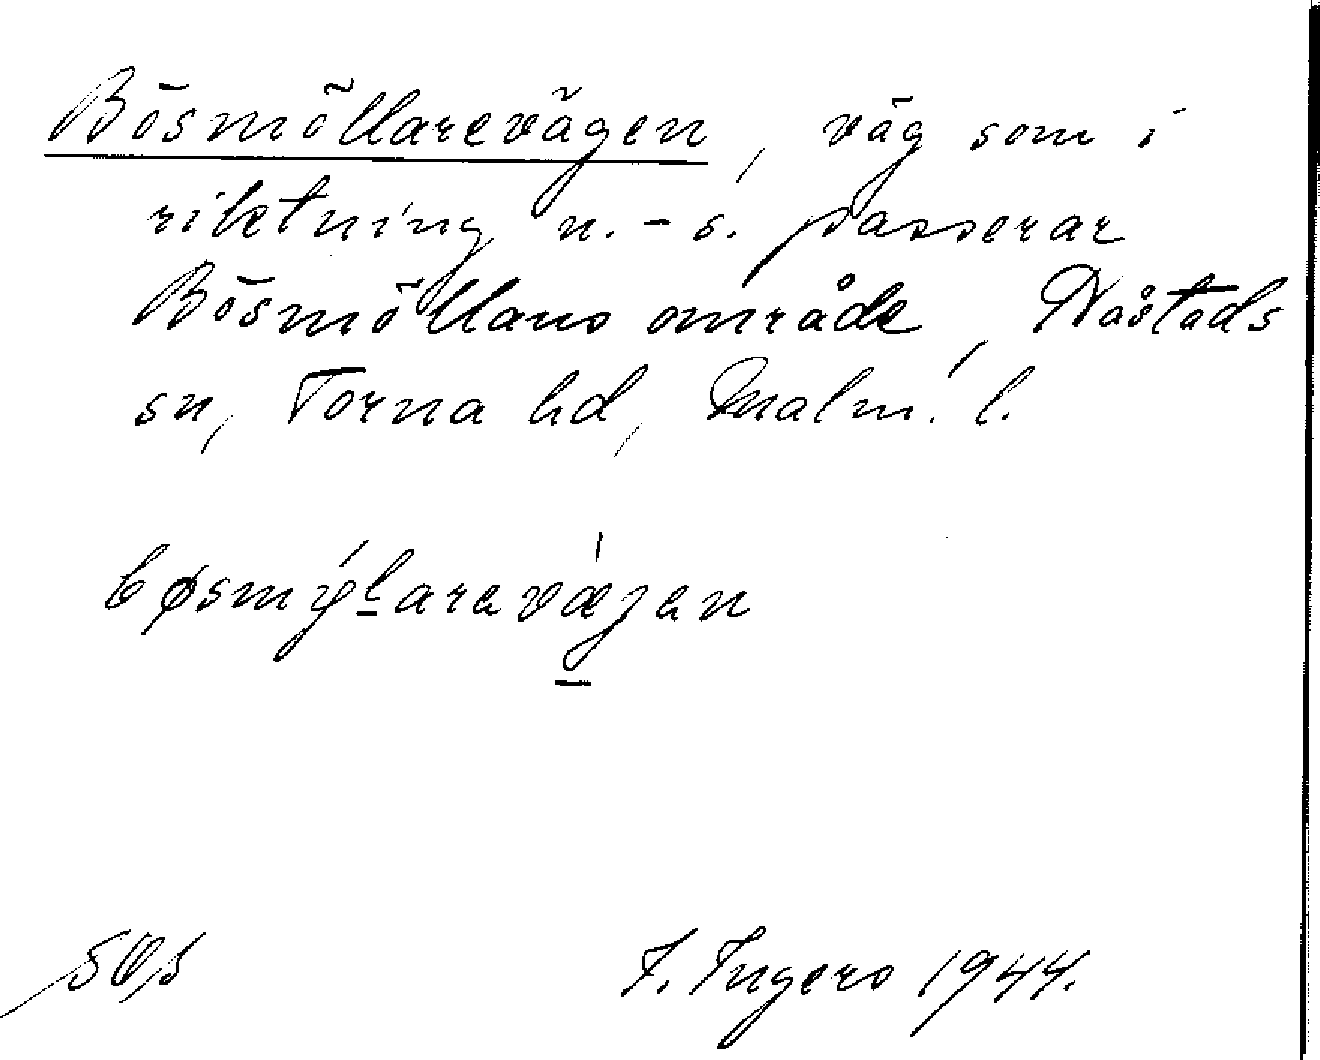 Bösmöllarevägen, väg som i
riktning n.-s. passerar
Bösmöllans område, Nåstads
sn, Torna hd, Malm. l.
bøsmýlarevægen
I. Ingers 1944.